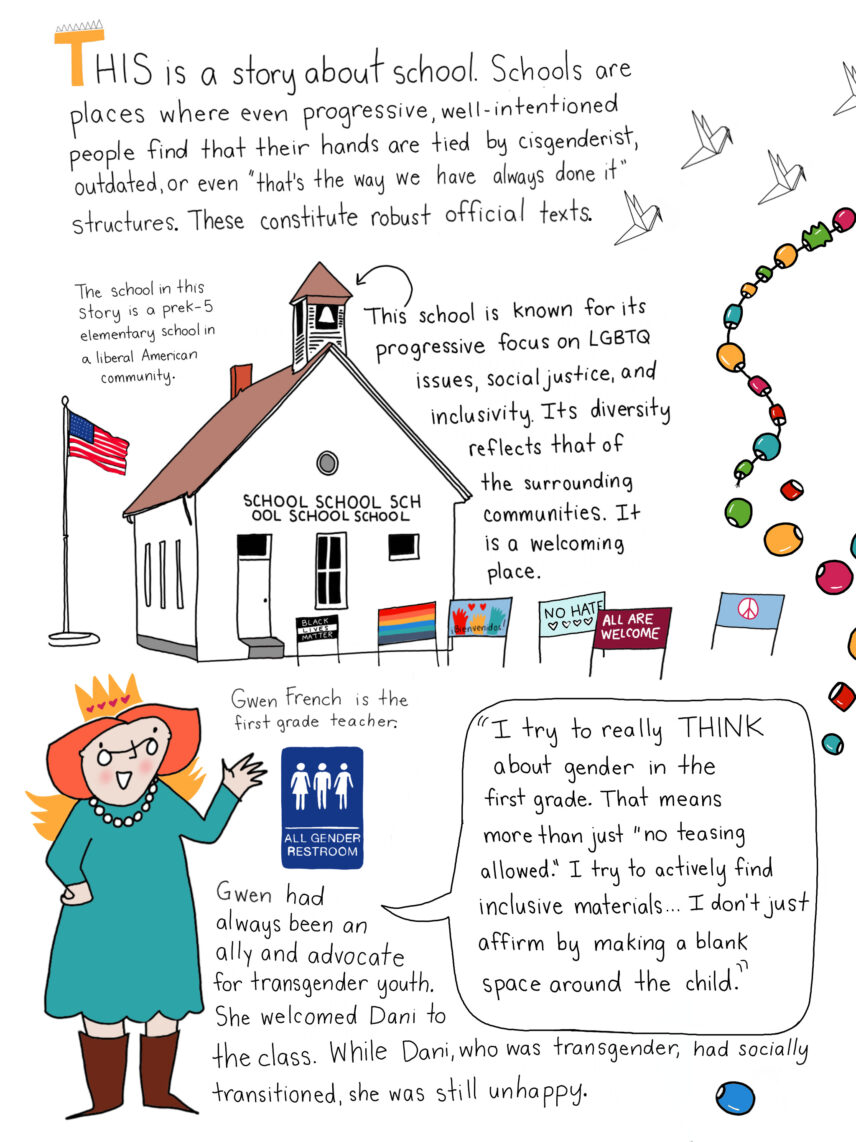 THIS is a story about school. Schools are
places where even progressive, well-intentioned
people find that their hands are tied by cisgenderist,
outdated, or even "that's the way we have always done it"
structures. These constitute robust official texts.
The school in this
story is a prek-5
elementary school in
a liberal American
community.
This school is known for its
progressive focus on LGBTQ
issues, social justice, and
inclusivity. Its diversity
reflects that of
the surrounding
communities. It
is a welcoming
place.
SCHOOL SCHOOL SCH
OOL SCHOOL SCHOOL
BLACK
LIVES
MATTER
¡Bienvenidos!
NO HATE
ALL ARE
WELCOME
Gwen French is the
first grade teacher.
ALL GENDER
RESTROOM
"I try to really THINK
about gender in the
first grade. That means
more than just "no teasing
allowed." I try to actively find
inclusive materials... I don't just
affirm by making a blank
space around the child."
Gwen had
always been an
ally and advocate
for transgender youth.
She welcomed Dani to
the class. While Dani, who was transgender, had socially
transitioned, she was still unhappy.